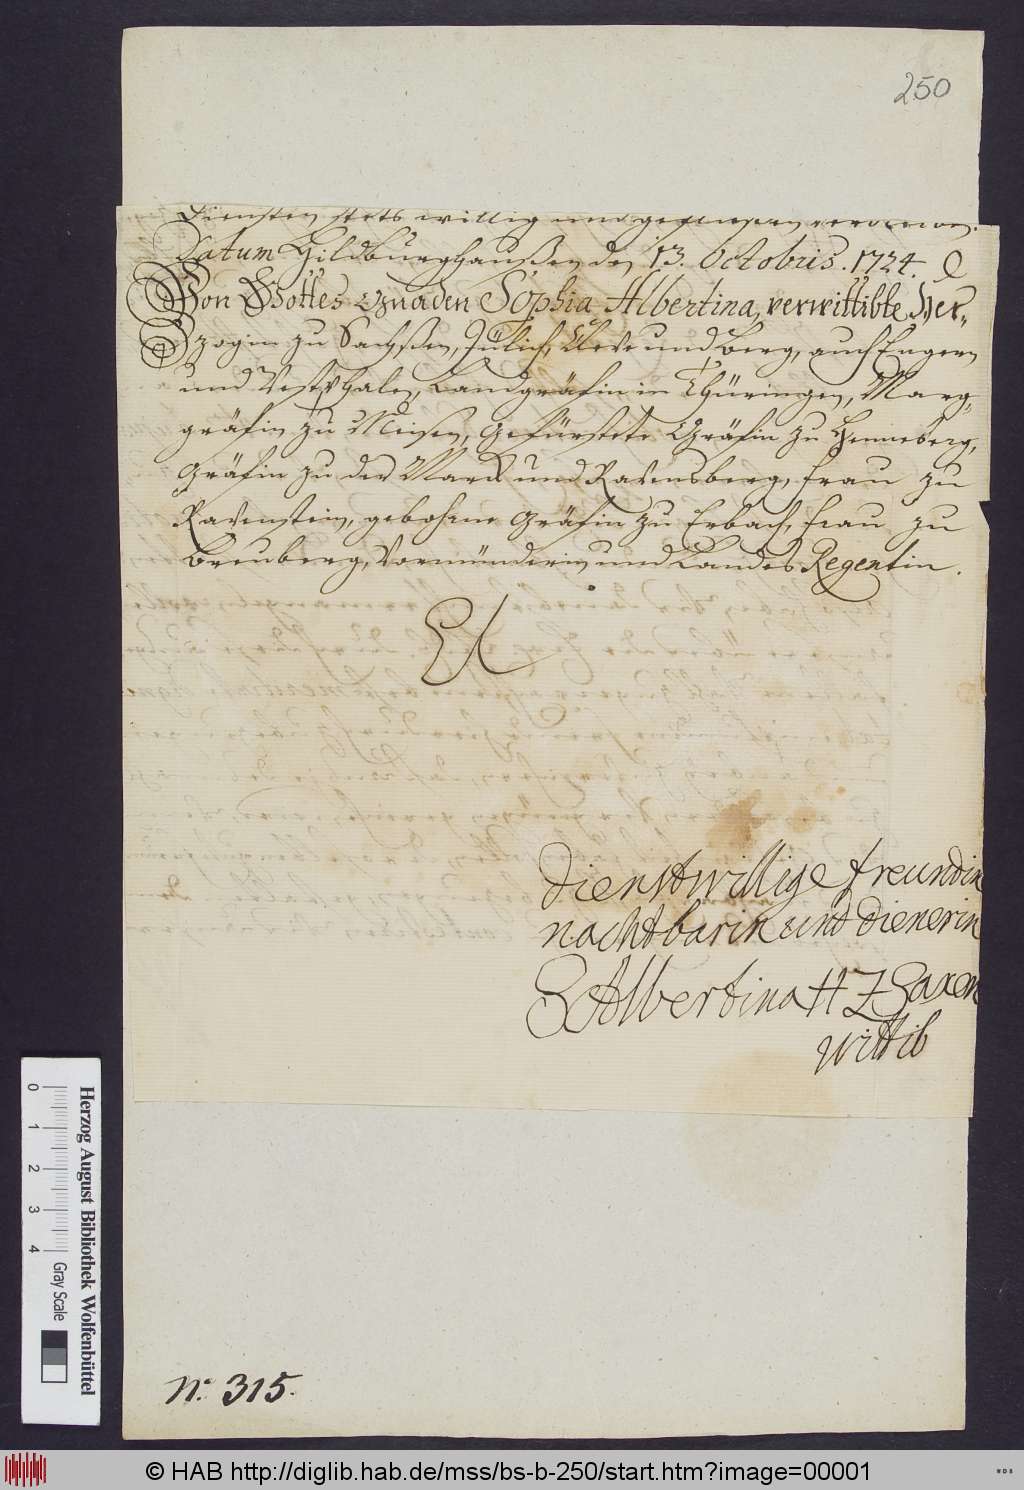 250
Diensten stets willig und geflißen verbleiben.
Datum Hildburghaußen den 13. Octobris. 1724.
Von Gottes Gnaden Sophia Albertina, verwittibte Her-
zogin zu Sachßen, Jülich, Cleve und Berg, auch Engern
und Westphalen, Landgräfin in Thüringen, Marg-
gräfin zu Meißen, Gefürstete Gräfin zu Henneberg,
Gräfin zu der Marck und Ravensberg, Frau zu
Ravenstein, gebohrne Gräfin zu Erbach, Frau zu
Breuberg, Vormünderin und Landes Regentin.
dienstwillige freundin
nachtbarin und dienerin
S Albertina H Z Saxen
wittib
N: 315.
Herzog August Bibliothek Wolfenbüttel
0 1 2 3 4 Gray Scale
© HAB http://diglib.hab.de/mss/bs-b-250/start.htm?image=00001